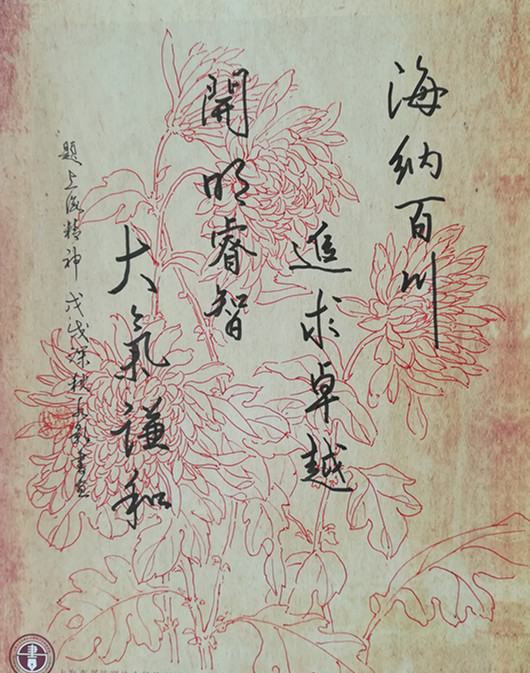 海纳百川
追求卓越
開明睿智
大氣谦和
題上海精神 戊戌深秋
書